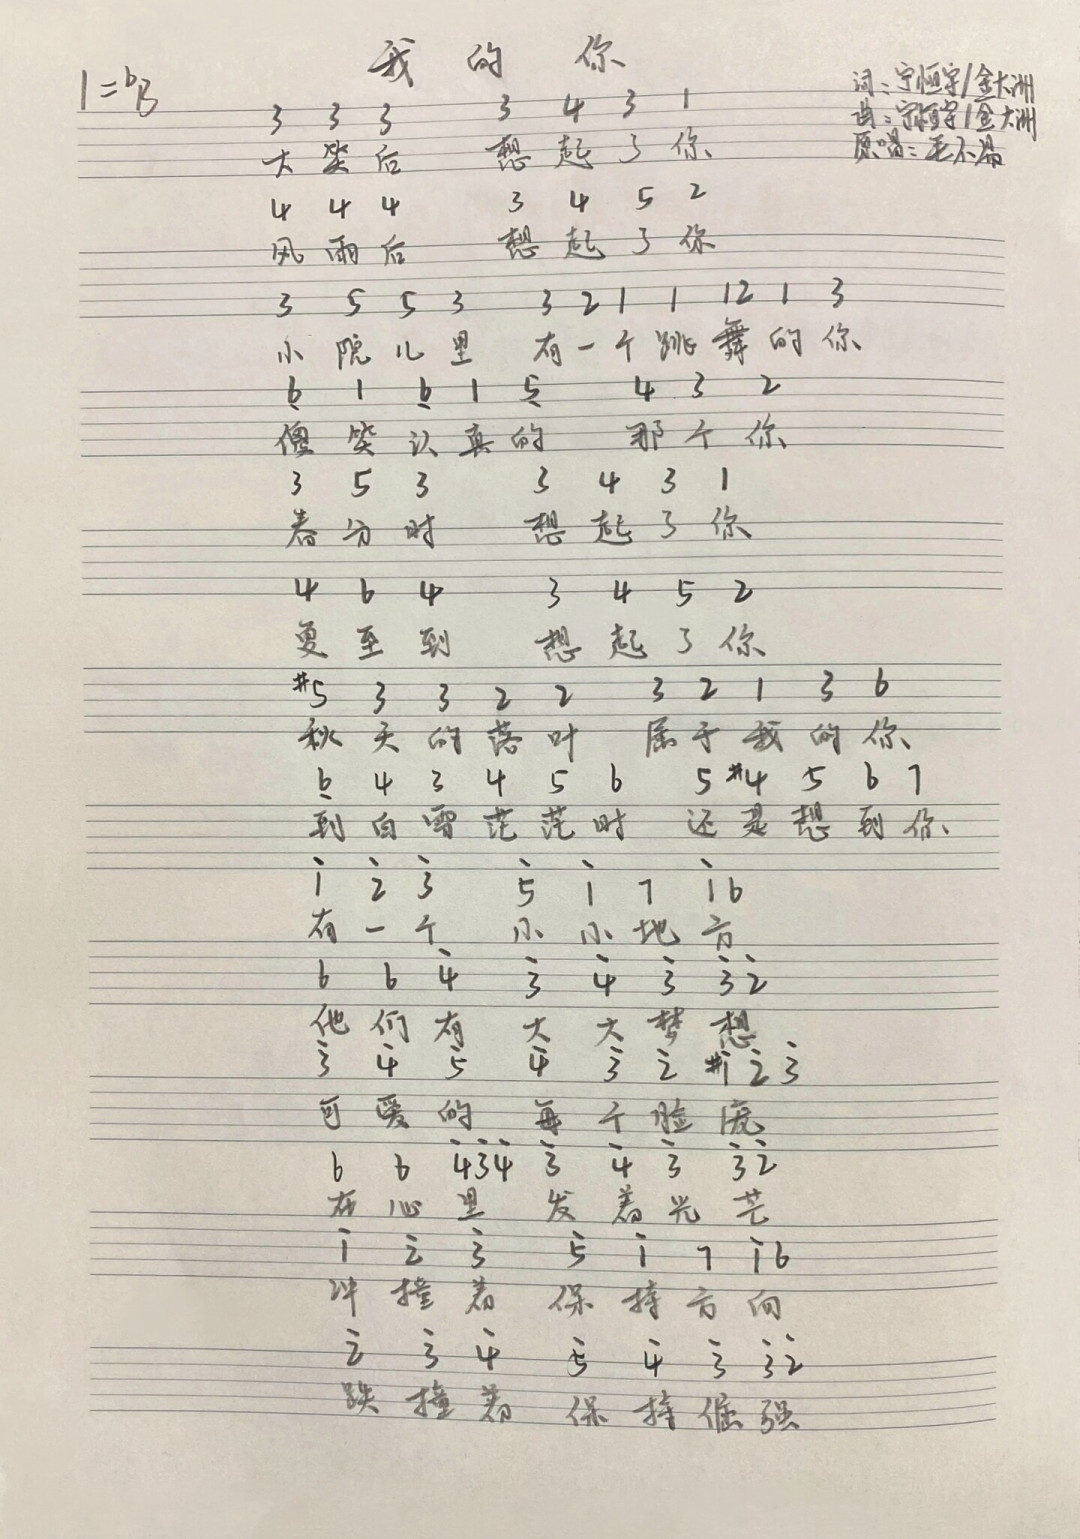 我的你
1=ᵇB
词:宁恒宇/金大洲
曲:宁恒宇/金大洲
原唱:毛不易
3 3 3 3 4 3 1
大笑后 想起了你
4 4 4 3 4 5 2
风雨后 想起了你
3 5 5 3 3 2 1 1 12 1 3
小院儿里 有一个跳舞的你
6̣ 1 6̣ 1 5̣ 4 3 2
傻笑认真的 那个你
3 5 3 3 4 3 1
春分时 想起了你
4 6 4 3 4 5 2
夏至到 想起了你
#5 3 3 2 2 3 2 1 3 6
秋天的落叶 属于我的你
6̣ 4 3 4 5 6 5 #4 5 6 7
到白雪茫茫时 还是想到你
1̇ 2̇ 3̇ 5̇ 1̇ 7 1̇6
有一个 小小地方
6 6 4̇ 3̇ 4̇ 3̇ 3̇2̇
他们有 大大梦想
3̇ 4̇ 5̇ 4̇ 3̇ 2̇ #1̇ 2̇ 3̇
可爱的 每个脸庞
6 6 4̇3̇4̇ 3̇ 4̇ 3̇ 3̇2̇
在心里 发着光芒
1̇ 2̇ 3̇ 5̇ 1̇ 7 1̇6
冲撞着 保持方向
2̇ 3̇ 4̇ 5̇ 4̇ 3̇ 3̇2̇
跌撞着 保持倔强